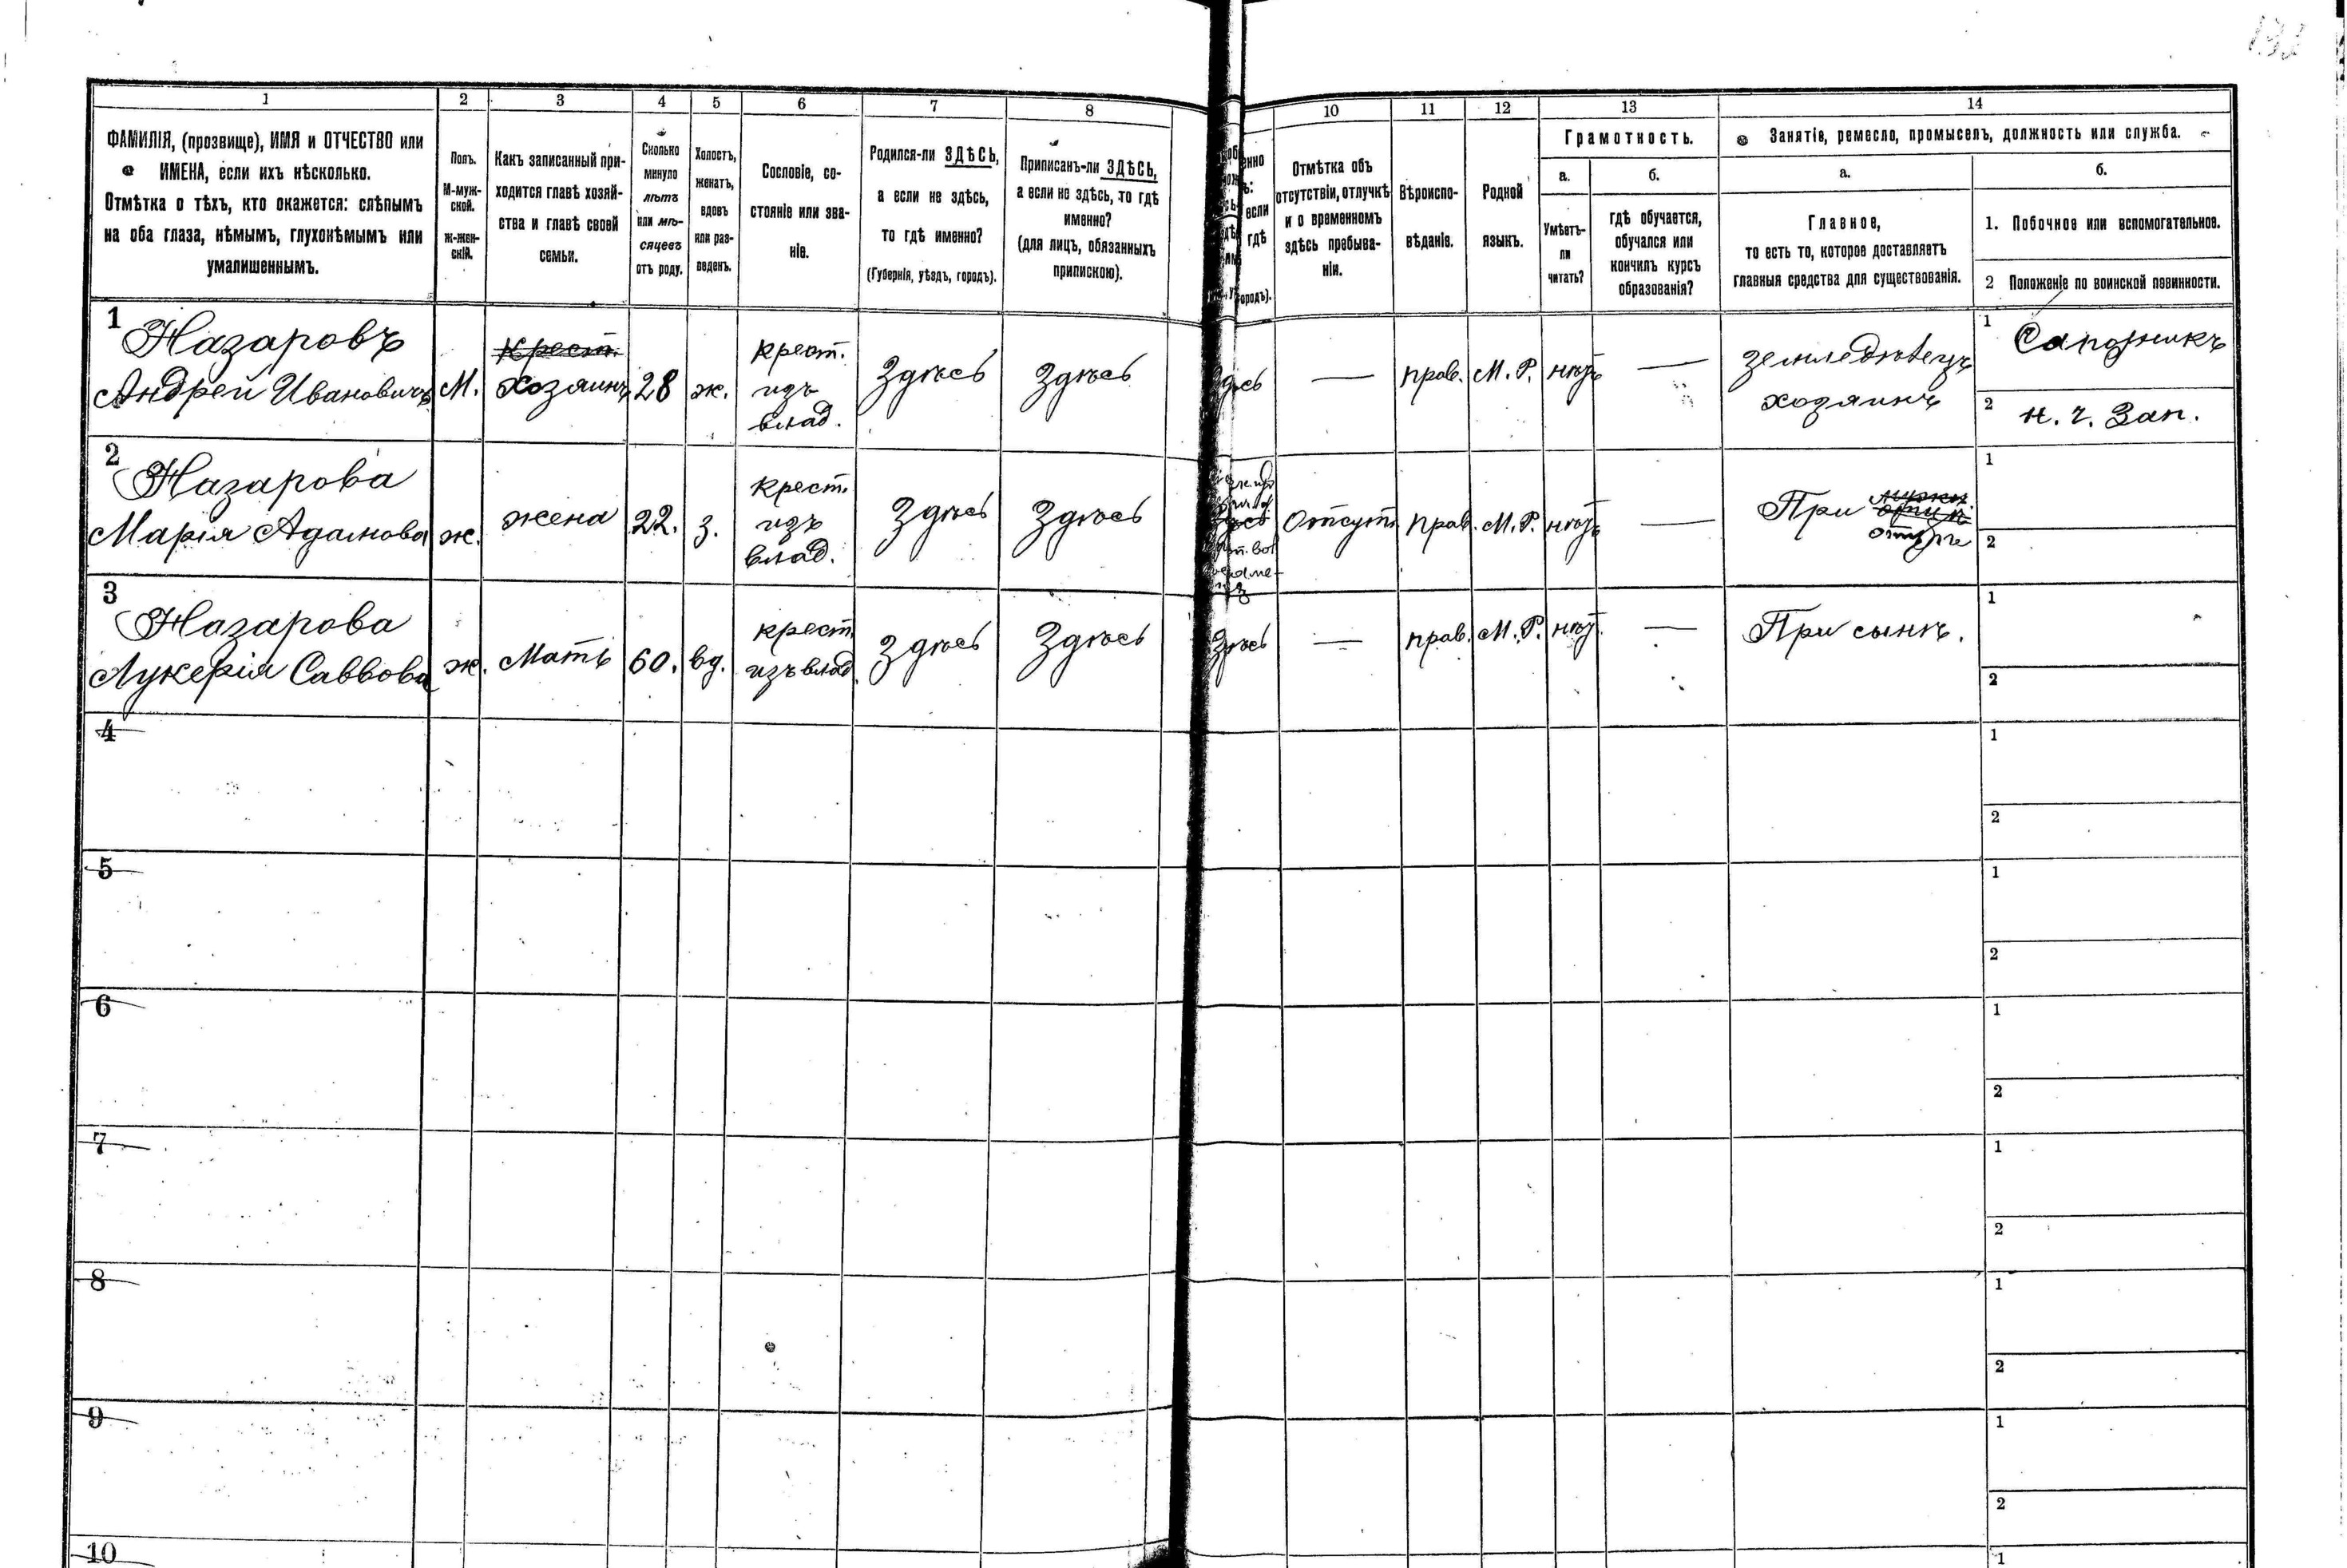 133
1 2 3 4 5 6 7 8 10 11 12 13 14
ФАМИЛІЯ, (прозвище), ИМЯ и ОТЧЕСТВО или
ИМЕНА, если ихъ нѣсколько.
Отмѣтка о тѣхъ, кто окажется: слѣпымъ
на оба глаза, нѣмымъ, глухонѣмымъ или
умалишеннымъ.
Полъ.
М-муж-
ской.
ж-жен-
скій.
Какъ записанный при-
ходится главѣ хозяй-
ства и главѣ своей
семьи.
Сколько
минуло
лѣтъ
или мѣ-
сяцевъ
отъ роду.
Холостъ,
женатъ,
вдовъ
или раз-
веденъ.
Сословіе, со-
стояніе или зва-
ніе.
Родился-ли ЗДѢСЬ,
а если не здѣсь,
то гдѣ именно?
(Губернія, уѣздъ, городъ).
Приписанъ-ли ЗДѢСЬ,
а если не здѣсь, то гдѣ
именно?
(для лицъ, обязанныхъ
припискою).
если
гдѣ
Отмѣтка объ
отсутствіи, отлучкѣ
и о временномъ
здѣсь пребыва-
ніи.
Вѣроиспо-
вѣданіе.
Родной
языкъ.
Грамотность.
а.
Умѣетъ-
ли
читать?
б.
гдѣ обучается,
обучался или
кончилъ курсъ
образованія?
Занятіе, ремесло, промыселъ, должность или служба.
а.
Главное,
то есть то, которое доставляетъ
главныя средства для существованія.
б.
1. Побочное или вспомогательное.
2 Положеніе по воинской повинности.
1
Назаровъ
Андрей Ивановичъ
М.
Крест.
Хозяинъ
28
ж.
крест.
изъ
влад.
Здѣсь
Здѣсь
Здѣсь
—
прав.
М. Р.
нѣтъ
—
земледѣлецъ
хозяинъ
1 Сапожникъ
2 н. ч. Зап.
2
Назарова
Марія Адамова
ж.
жена
22.
з.
крест.
изъ
влад.
Здѣсь
Здѣсь
Отсутт.
прав.
М. Р.
нѣтъ
—
При
1
2
3
Назарова
Лукерія Саввова
ж.
Мать
60.
вд.
крест
изъ влад.
Здѣсь
Здѣсь
Здѣсь
—
прав.
М. Р.
нѣт.
—
При сынѣ.
1
2
4
1
2
5
1
2
6
1
2
7
1
2
8
1
2
9
1
2
10
1